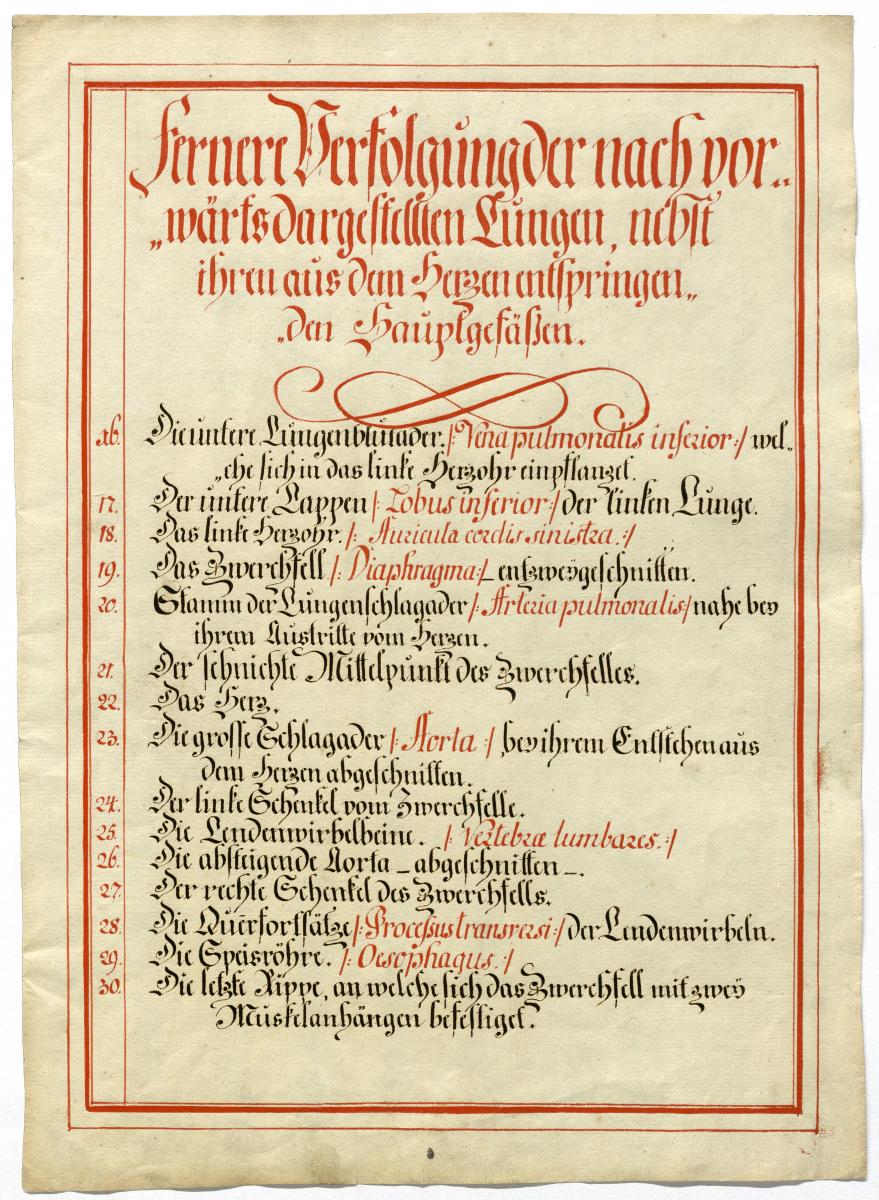 Fernere Verfolgung der nach vor„
„wärts dargestellten Lungen, nebst
ihren aus dem Herzen entspringen„
„den Hauptgefäßen.
16. Die untere Lungenblutader. /: Vena pulmonalis inferior :/ wel„
„che sich in das linke Herzohr einpflanzet.
17. Der untere Lappen /: Lobus inferior :/ der linken Lunge.
18. Das linke Herzohr. /: Auricula cordis sinistra. :/
19. Das Zwerchfell /: Diaphragma :/ _ entzweÿgeschnitten.
20. Stamm der Lungenschlagader /: Arteria pulmonalis :/ nahe beÿ
ihrem Austritte vom Herzen.
21. Der sehnichte Mittelpunkt des Zwerchfelles.
22. Das Herz.
23. Die grosse Schlagader /: Aorta :/ beÿ ihrem Entstehen aus
dem Herzen abgeschnitten.
24. Der linke Schenkel vom Zwerchfelle.
25. Die Lendenwirbelbeine. /: Vertebræ lumbares. :/
26. Die absteigende Aorta _ abgeschnitten _.
27. Der rechte Schenkel des Zwerchfells.
28. Die Querfortsätze /: Processus transversi :/ der Lendenwirbeln.
29. Die Speisröhre. /: Oesophagus. :/
30. Die letzte Rippe, an welche sich das Zwerchfell mit zweÿ
Muskelanhängen befestiget.